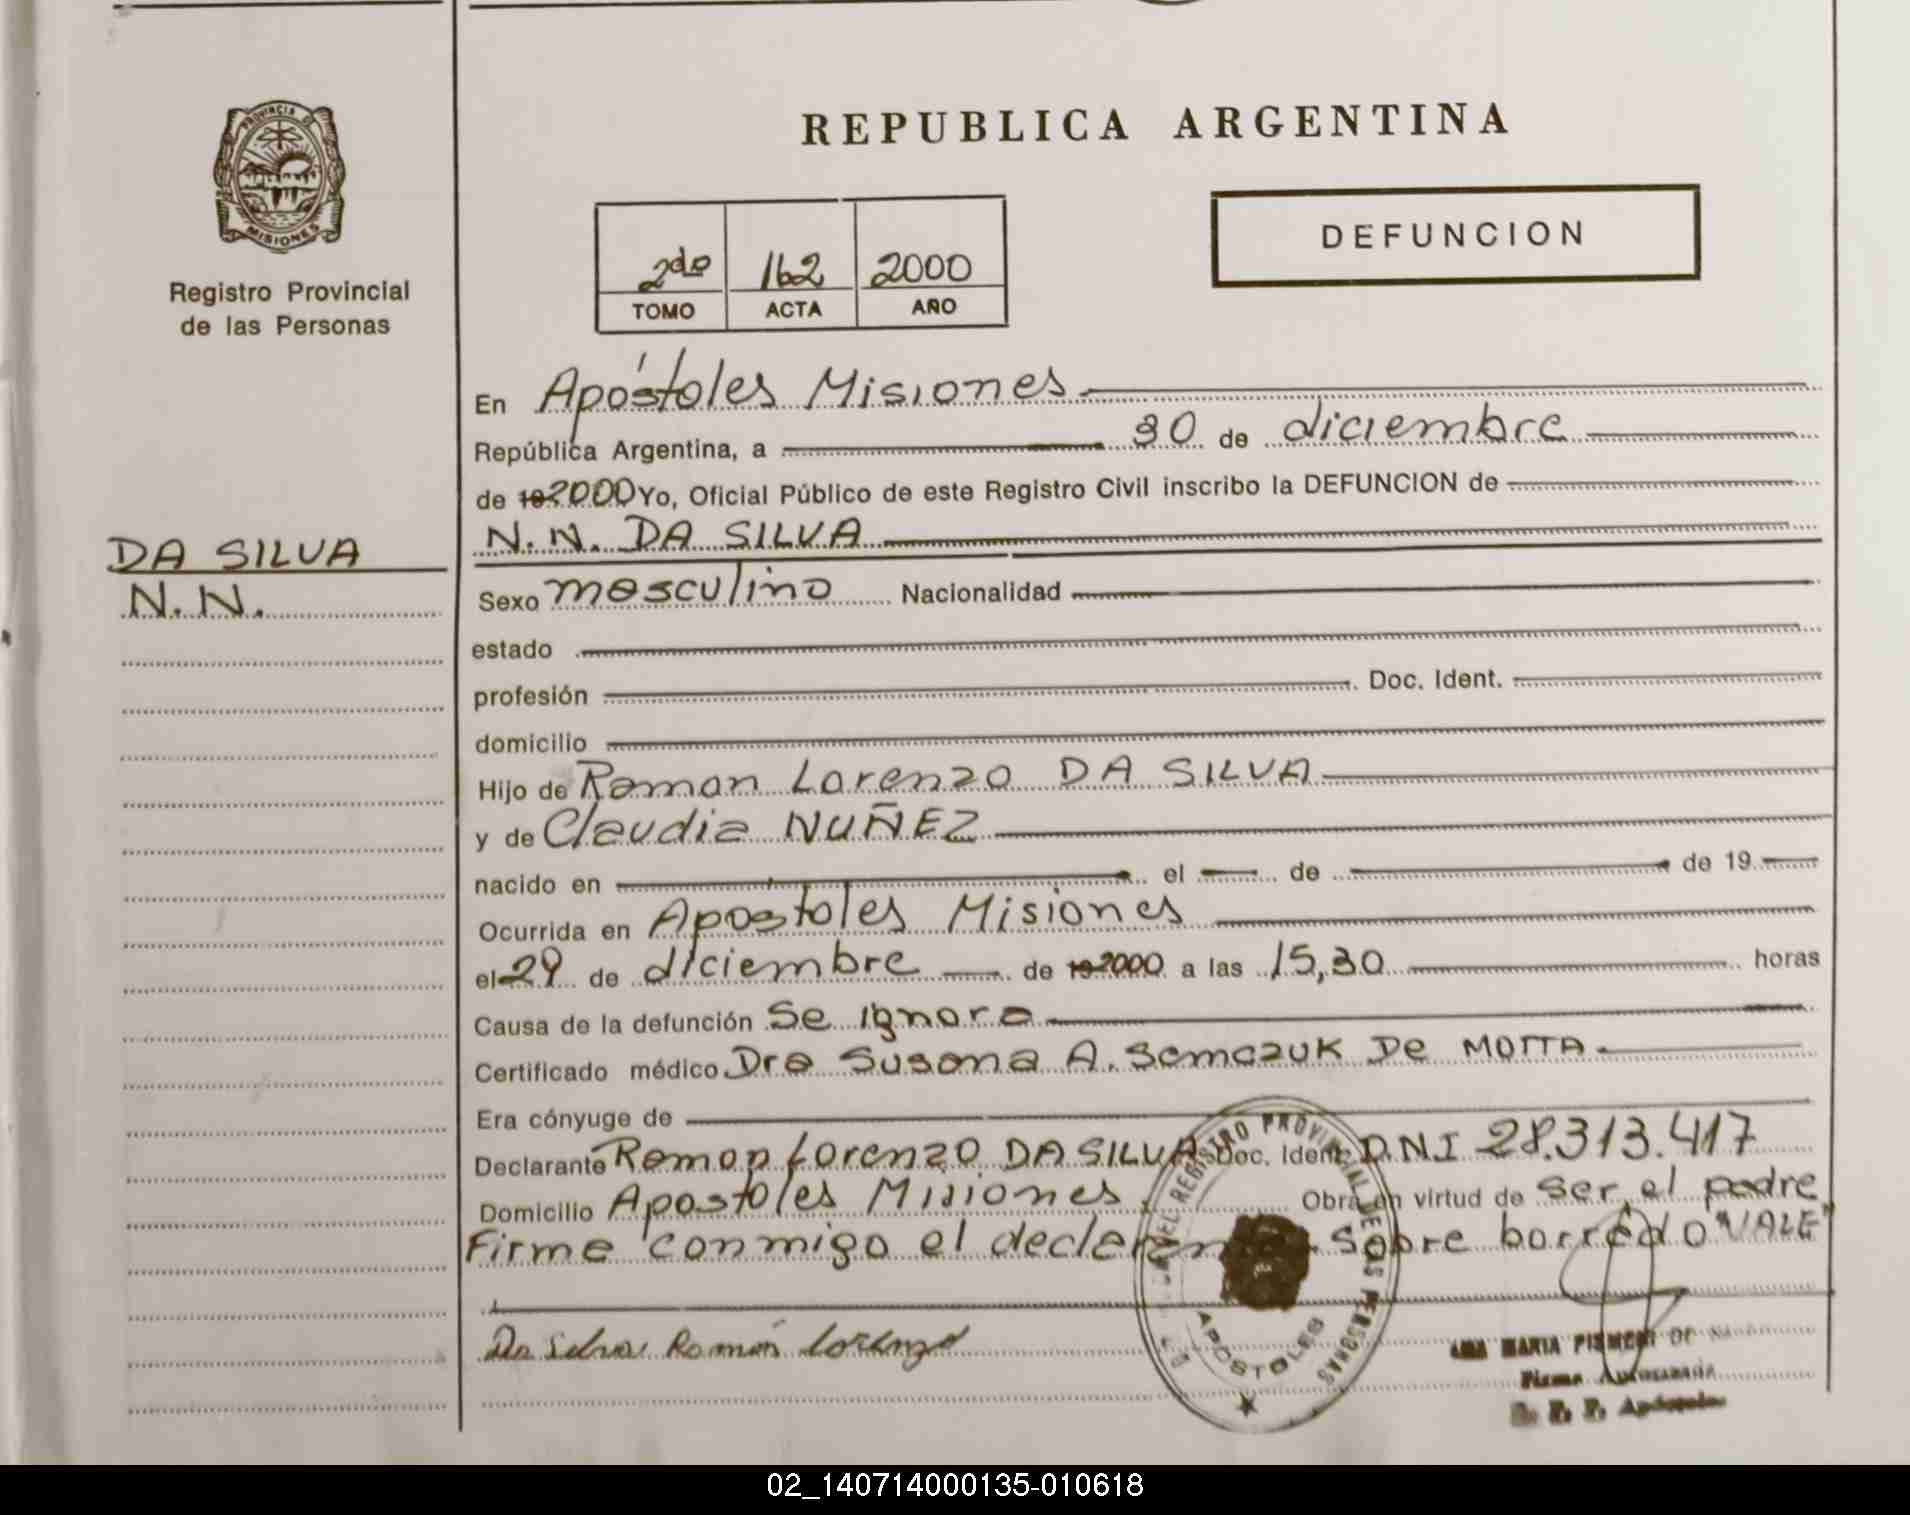 PROVINCIA DE
MISIONES
Registro Provincial
de las Personas
REPUBLICA ARGENTINA
DEFUNCION
2do 162 2000
TOMO ACTA AÑO
En Apóstoles Misiones
República Argentina, a 30 de diciembre
de 19 2000 Yo, Oficial Público de este Registro Civil inscribo la DEFUNCION de
DA SILVA
N.N.
N.N. DA SILVA
Sexo masculino Nacionalidad
estado
profesión Doc. Ident.
domicilio
Hijo de Ramon Lorenzo DA SILVA
y de Claudia NUÑEZ
nacido en el de de 19
Ocurrida en Apostoles Misiones
el 29 de diciembre de 19 2000 a las 15,30 horas
Causa de la defunción Se ignora
Certificado médico Dra Susana A. Semczuk De MOTTA
Era cónyuge de
Declarante Ramon Lorenzo DA SILVA Doc. Ident. D.N.I 28.313.417
Domicilio Apostoles Misiones. Obra en virtud de ser el padre
Firma conmigo el Sobre borrado "VALE"
Da Silva Ramón Lorenzo
REGISTRO PROVINCIAL DE LAS PERSONAS
APOSTOLES
ANA MARIA
Firma Autorizada
Apóstoles
02_140714000135-010618